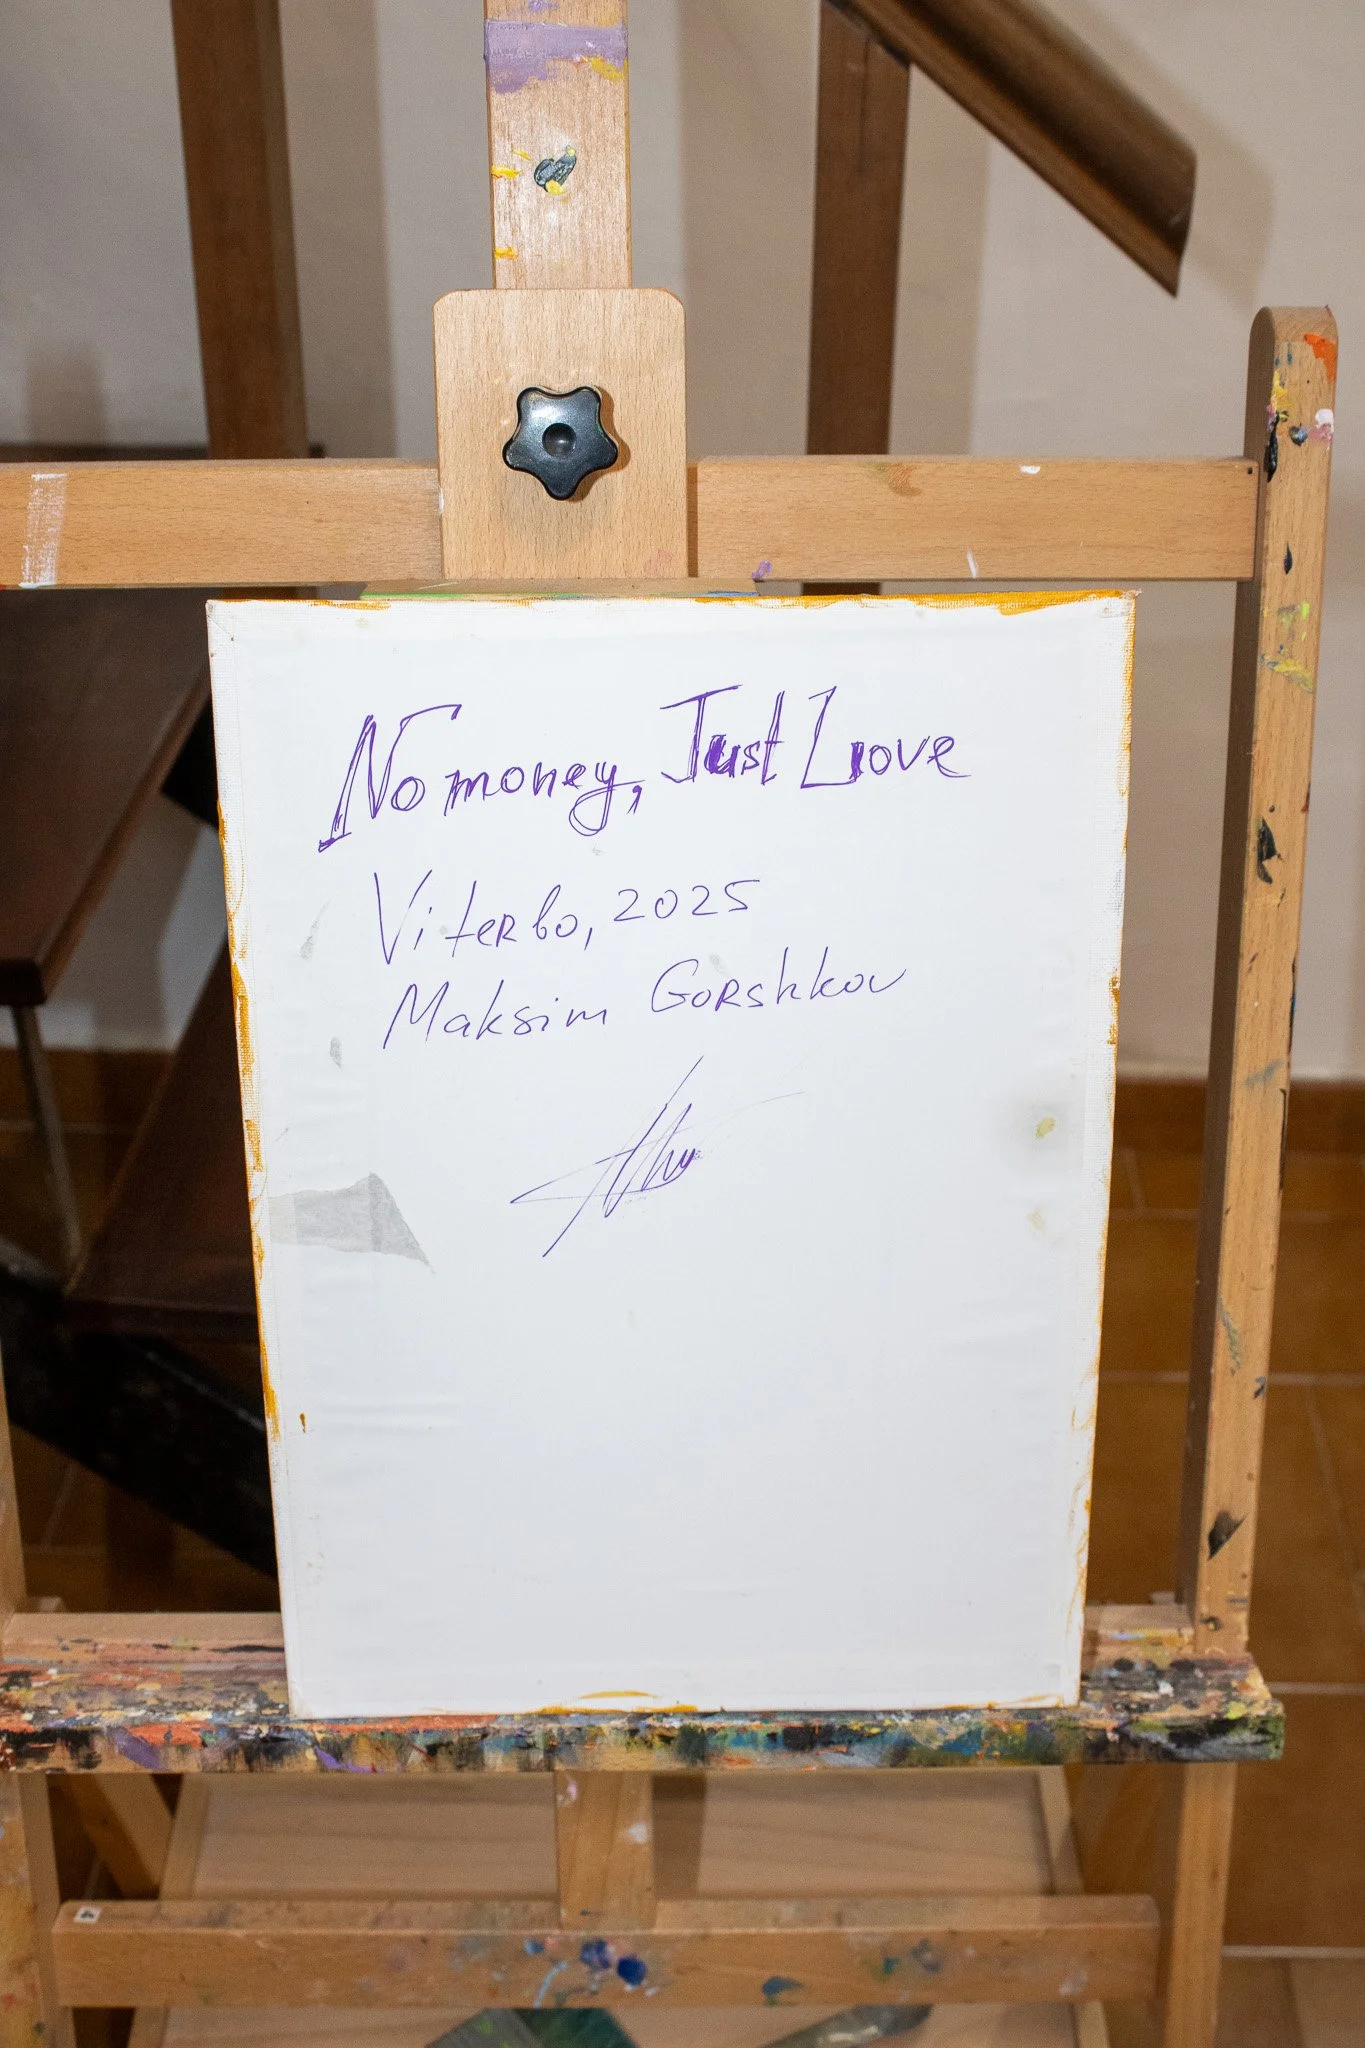 No money, Just Love
Viterbo, 2025
Maksim Gorshkov